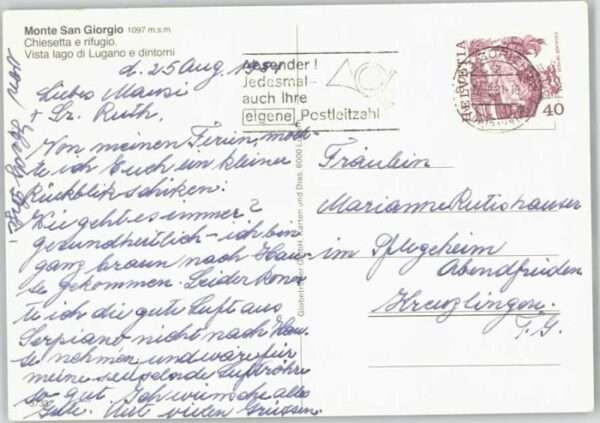 Monte San Giorgio 1097 m.s.m.
Chiesetta e rifugio.
Vista lago di Lugano e dintorni
Absender!
Jedesmal
auch Ihre
eigene Postleitzahl
HELVETIA
40
d. 25 Aug.
Liebes
+ Sr. Ruth,
Von meinen Ferien, möch-
te ich Euch ein kleiner
Rückblik schiken.
Wie geht es immer?
gesundheitlich - ich bin
ganz braun nach Hau-
se gekommen. Leider konn-
te ich die gute Luft aus
Serpiano nicht nach Hau
se nehmen, und wäre für
meine Luftröhre
so gut. Ich wünsche alles
Gute. Mit vielen Grüssen.
Fräulein
Marianne Rutishauser
im Pflegeheim
Abendfrieden
Kreuzlingen.
T.G.